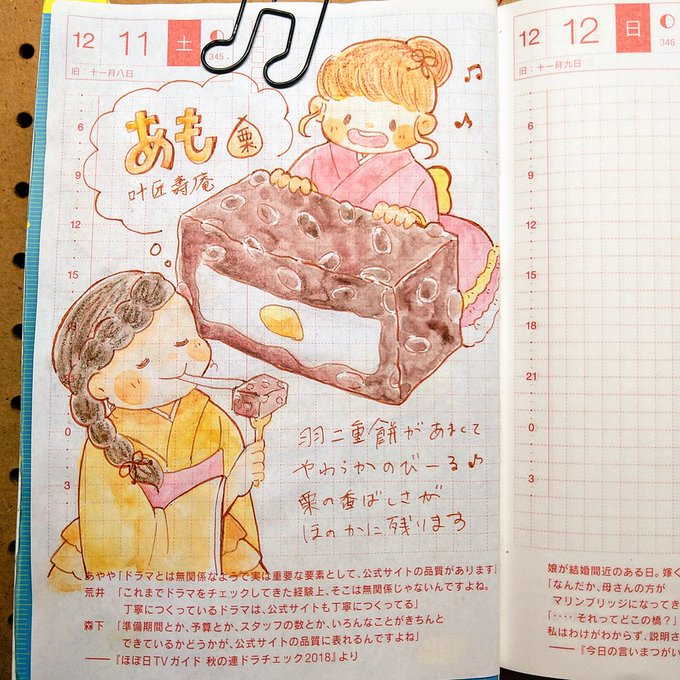 12 11 土 345
旧：十一月八日
あも 栗
叶匠壽庵
6
9
12
15
18
21
0
3
羽二重餅があまくて
やわらかのびーる♪
栗の香ばしさが
ほのかに残ります
あやや「ドラマとは無関係なようで実は重要な要素として、公式サイトの品質があります」
荒井　「これまでドラマをチェックしてきた経験上、そこは無関係じゃないんですよね。
丁寧につくっているドラマは、公式サイトも丁寧につくってる」
森下　「準備期間とか、予算とか、スタッフの数とか、いろんなことがきちんと
できているかどうかが、公式サイトの品質に表れるんですよね」
——『ほぼ日TVガイド 秋の連ドラチェック2018』より
12 12 日 346
旧：十一月九日
6
9
12
15
18
21
0
3
娘が結婚間近のある日。嫁く
「なんだか、母さんの方が
マリンブリッジになってき
「‥‥ それってどこの橋？」
私はわけがわからず、説明さ
——『今日の言いまつがい